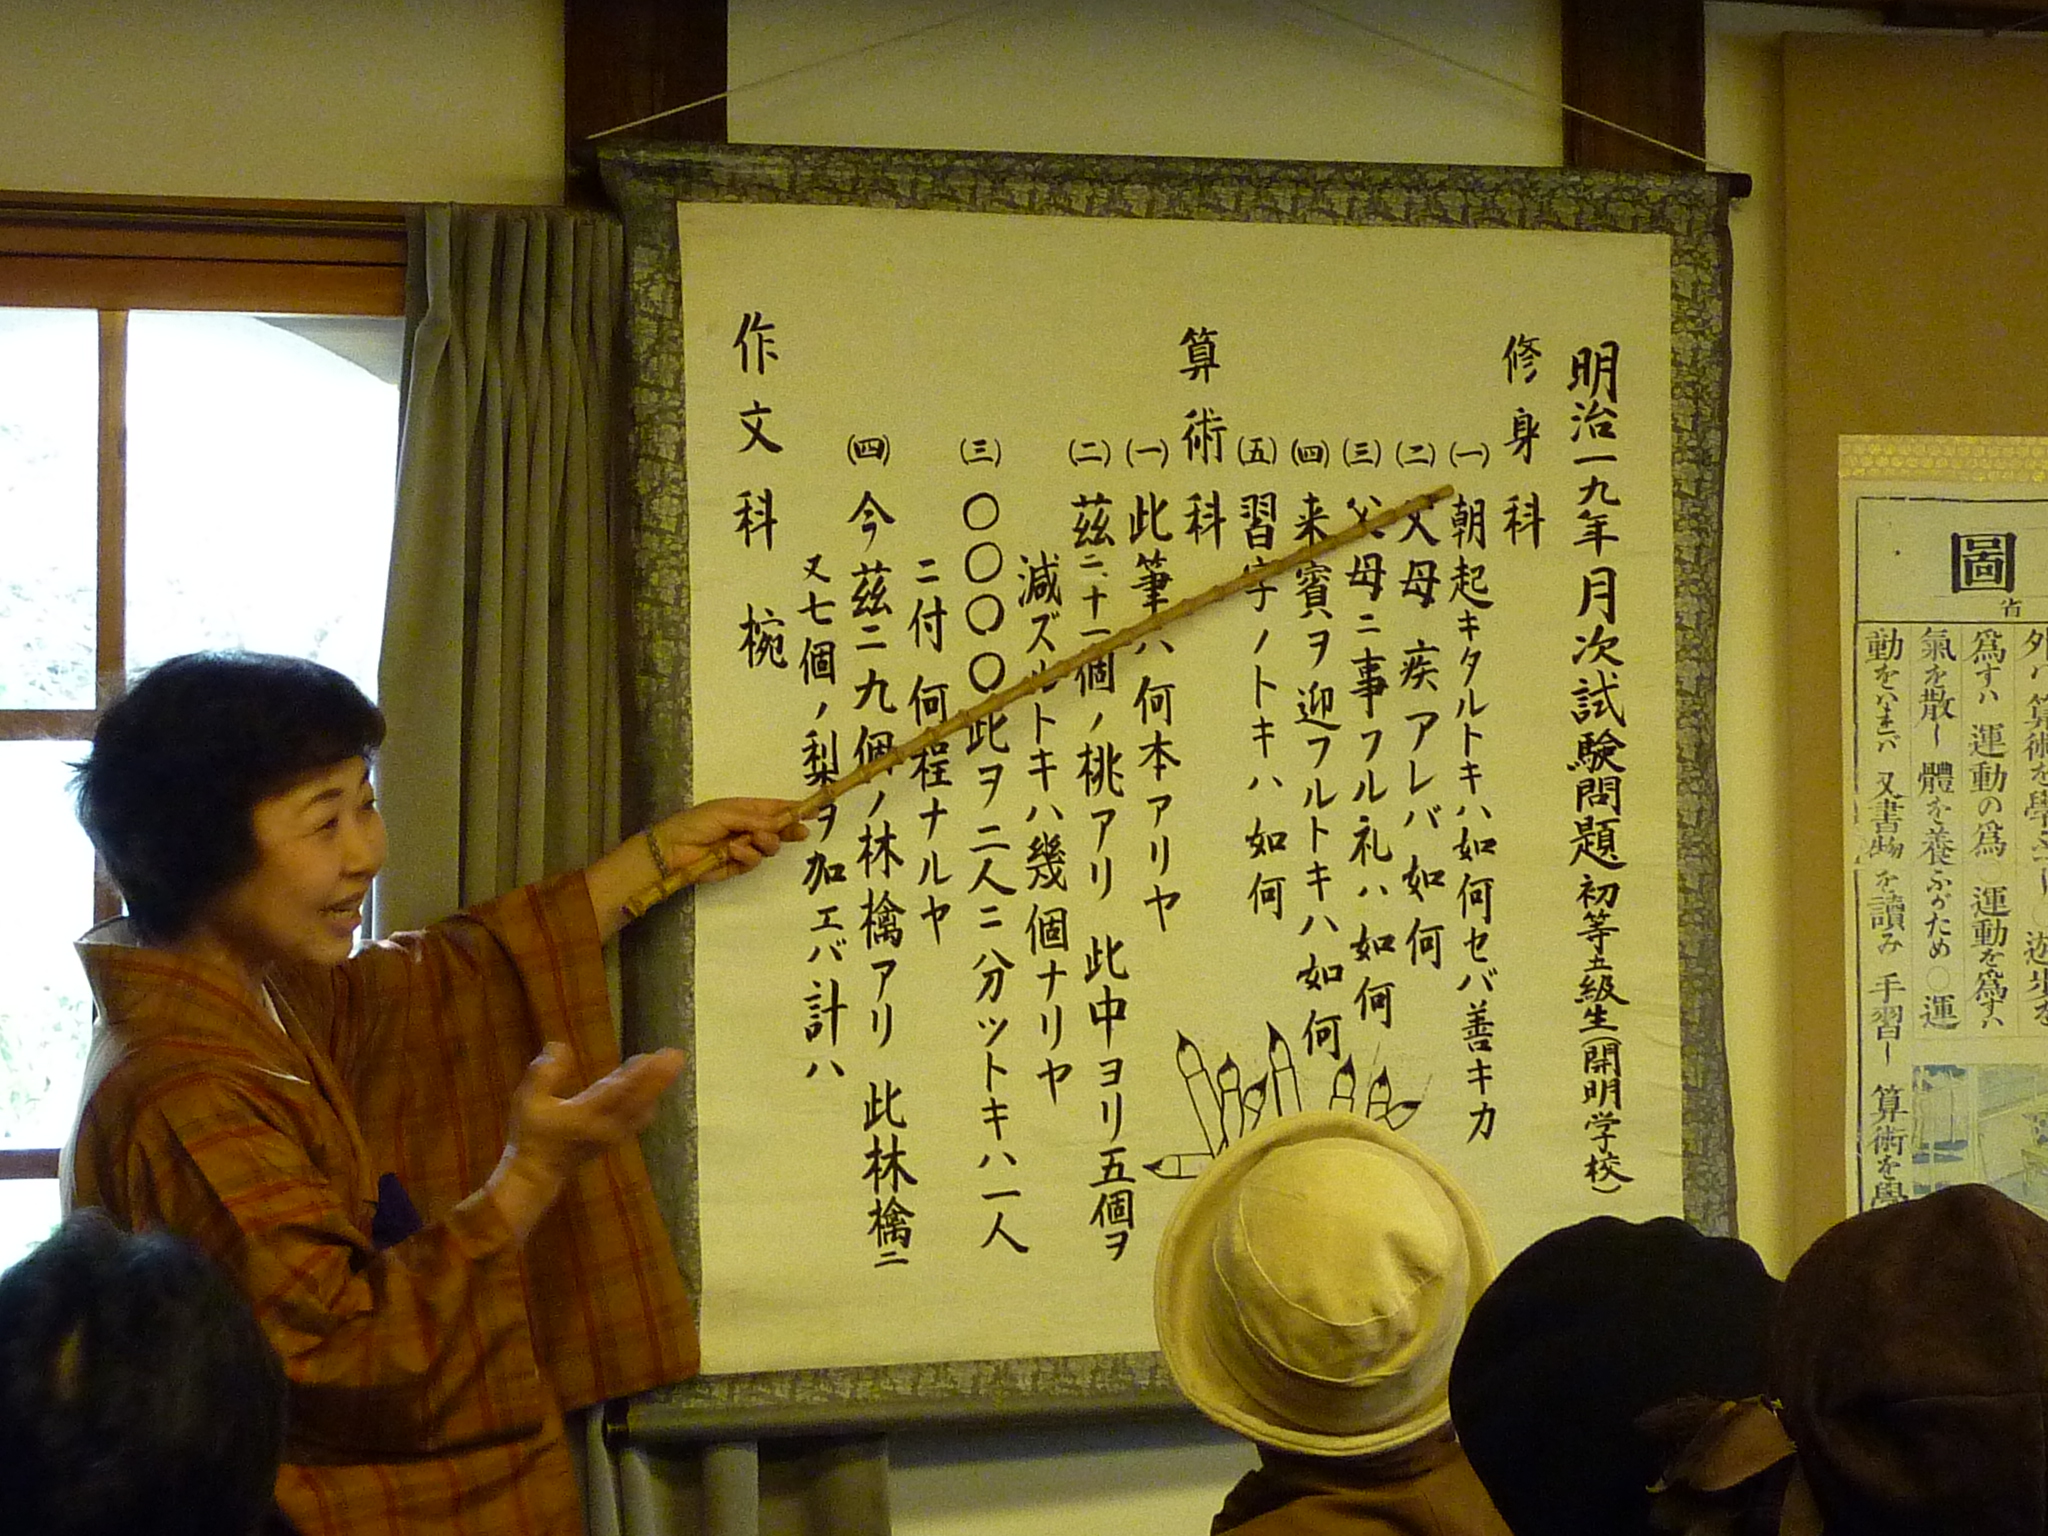 明治一九年 月次試験問題 初等五級生(開明学校)
修身科
(一) 朝起キタルトキハ如何セバ善キカ
(二) 父母 疾アレバ 如何
(三) 父母ニ事フル礼ハ如何
(四) 来賓ヲ迎フルトキハ如何
(五) 習字ノトキハ如何
算術科
(一) 此筆ハ何本アリヤ
(二) 茲ニ十一個ノ桃アリ 此中ヨリ五個ヲ
減ズルトキハ幾個ナリヤ
(三) 〇〇〇〇此ヲ二人ニ分ツトキハ一人
ニ付 何程ナルヤ
(四) 今茲ニ九個ノ林檎アリ 此林檎ニ
又七個ノ梨ヲ加エバ計ハ
作文科 椀
圖
省
爲すハ 運動の爲 〇運動を爲すハ
氣を散し 體を養ふがため 〇運
動を 又書物を讀み 手習し 算術を學